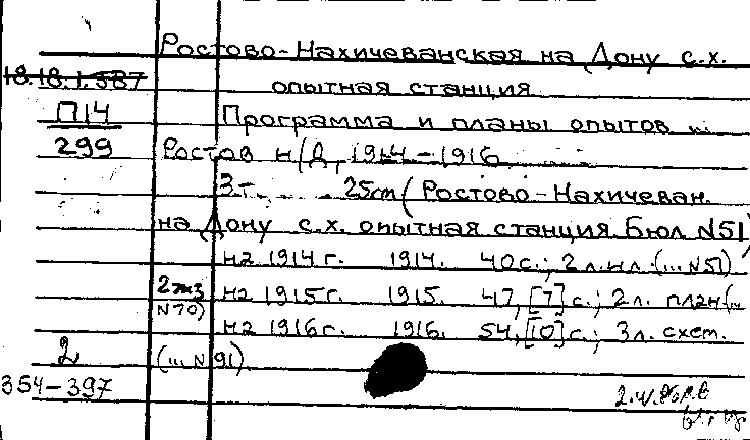 Ростово-Нахичеванская на Дону с.х.
18.18.1.587
опытная станция
П14
Программа и планы опытов ...
299
Ростов н/Д, 1914-1916
3 т. 25 cm (Ростово-Нахичеван.
на Дону с.х. опытная станция. Бюл. N51)
на 1914 г. 1914. 40 с.; 2 л. ил. (... N51)
2 экз на 1915 г. 1915. 47, [7] с.; 2 л. план (...
N 70)
на 1916 г. 1916. 54, [10] с.; 3 л. схем.
2 (... N 91)
354-397